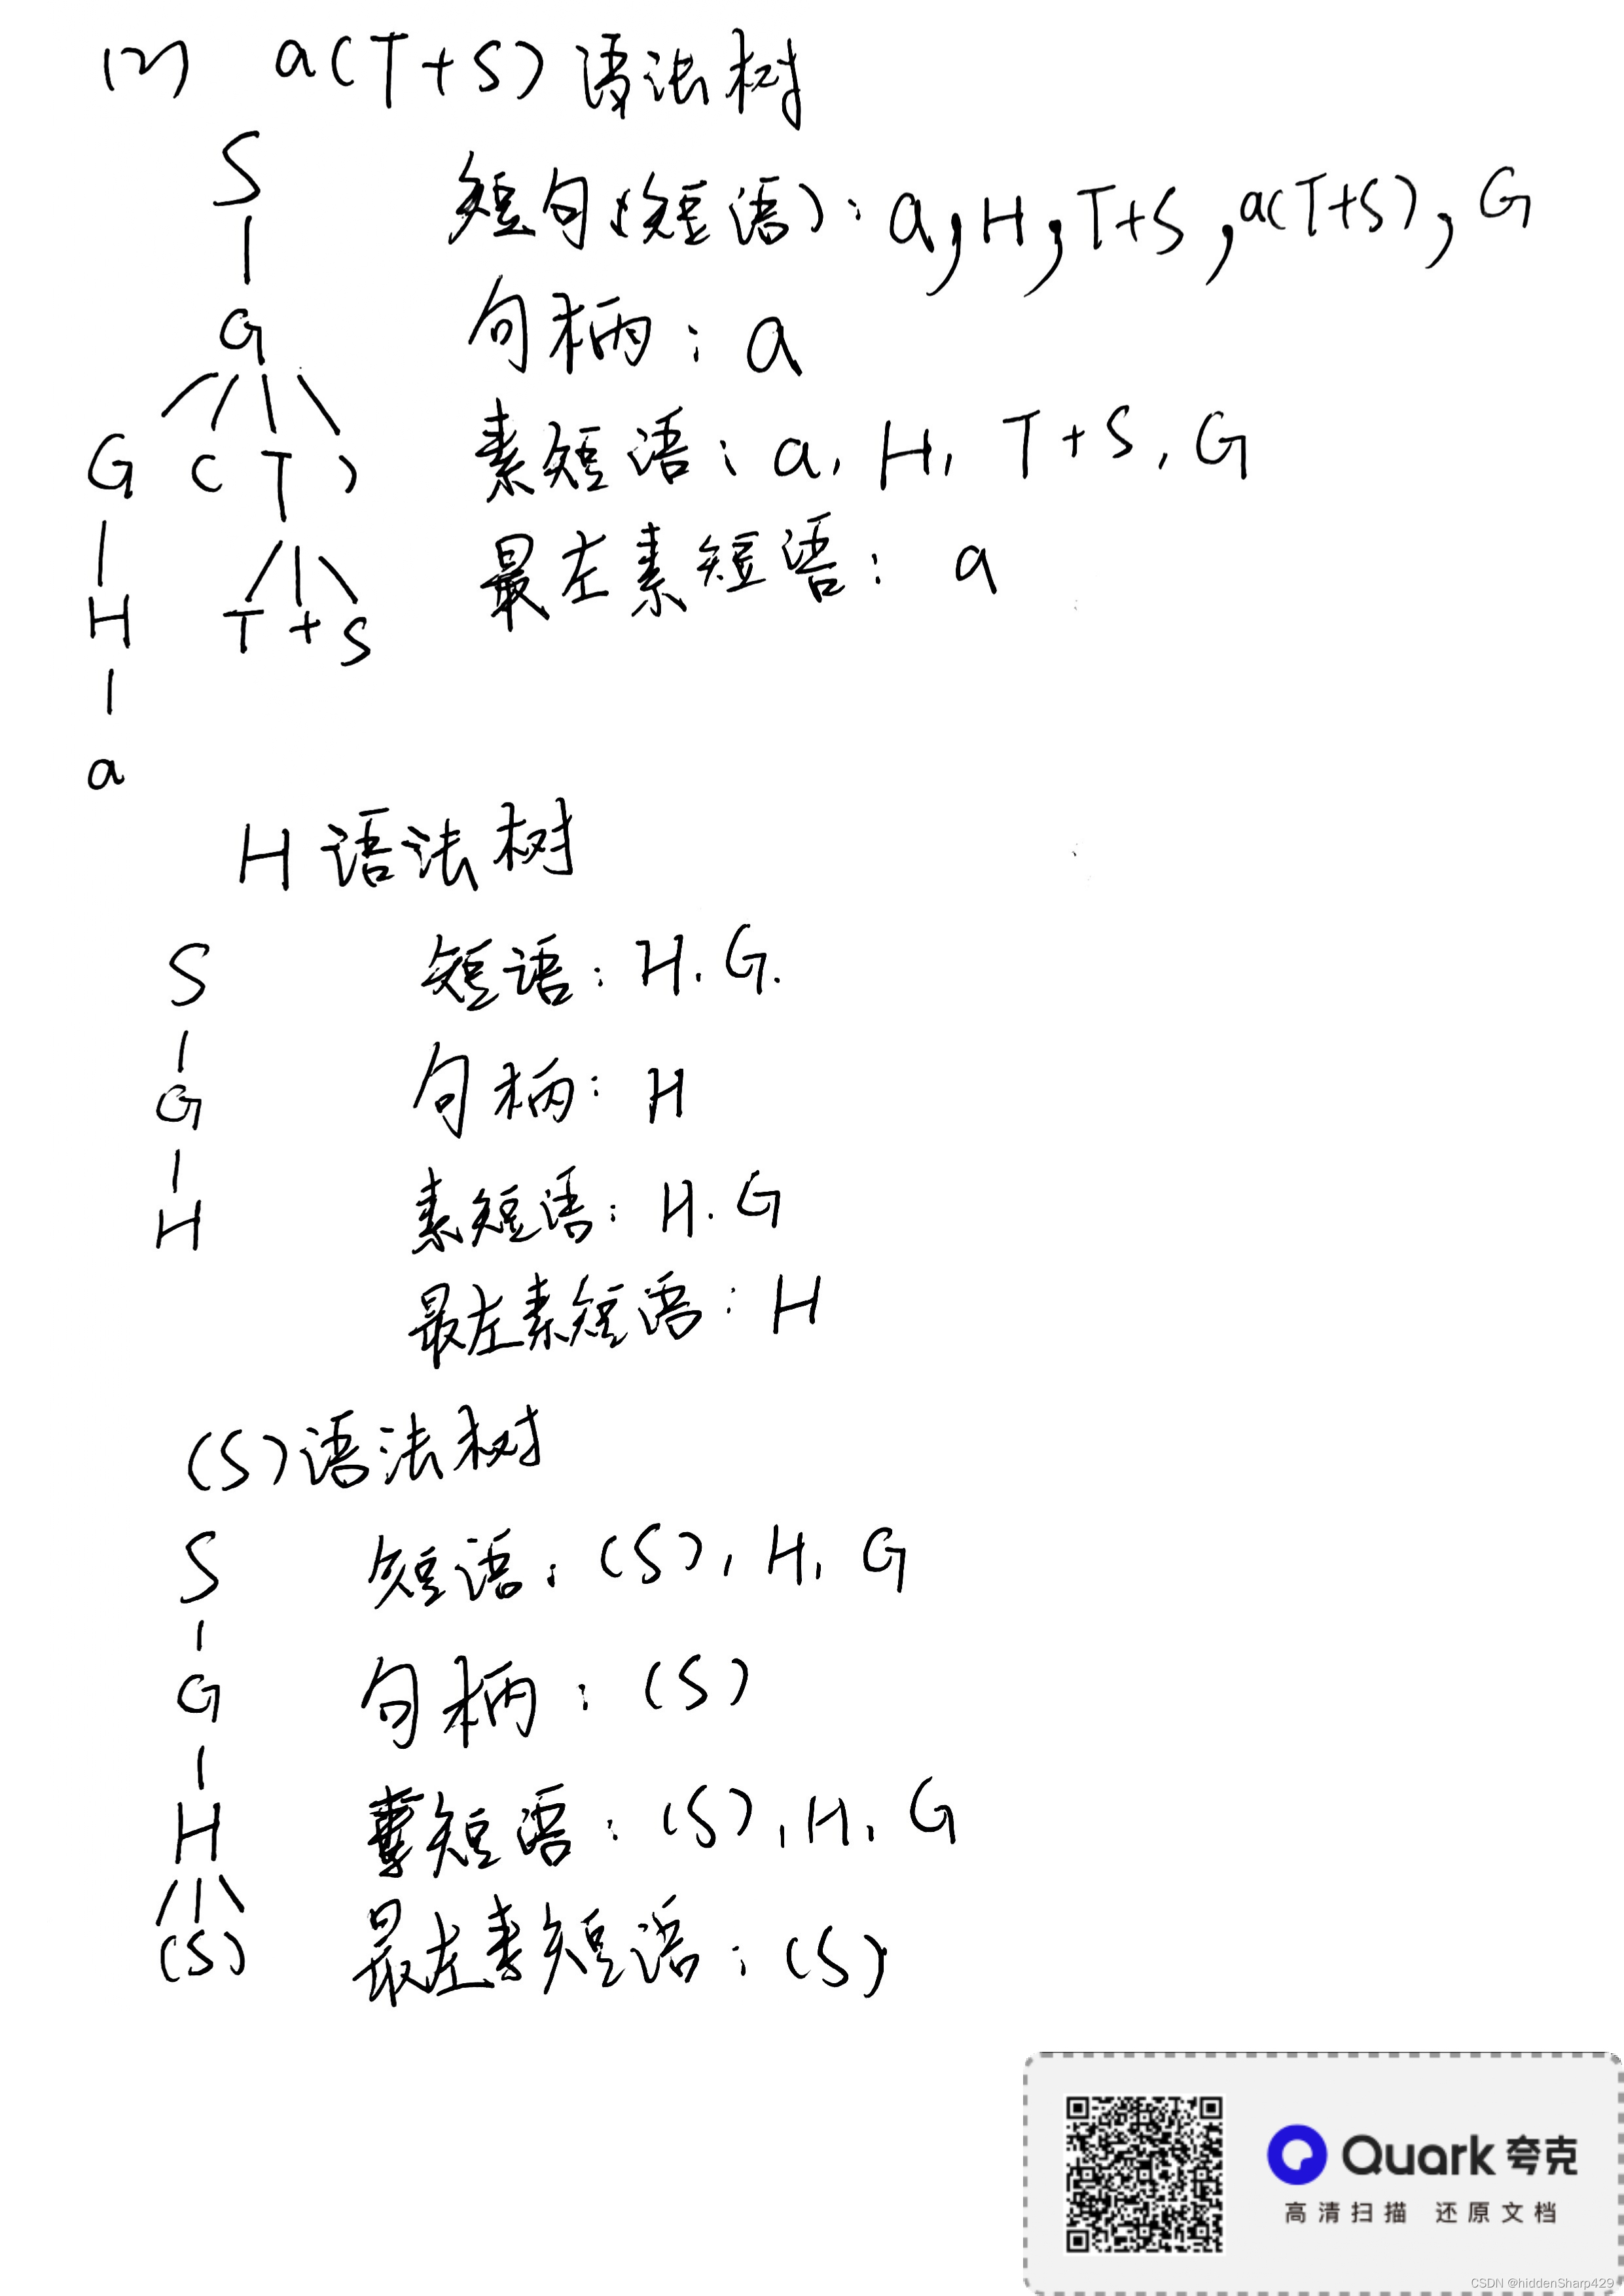 (2) a(T+S) 语法树
S
短句(短语): a, H, T+S, a(T+S), G
G
句柄: a
G ( T )
素短语: a, H, T+S, G
最左素短语: a
H T + S
a
H 语法树
S
短语: H. G.
G
句柄: H
H
素短语: H. G
最左素短语: H
(S) 语法树
S
短语: (S), H, G
G
句柄: (S)
H
素短语: (S), H, G
(S)
最左素短语: (S)
Quark 夸克
高清扫描 还原文档
CSDN @hiddenSharp429